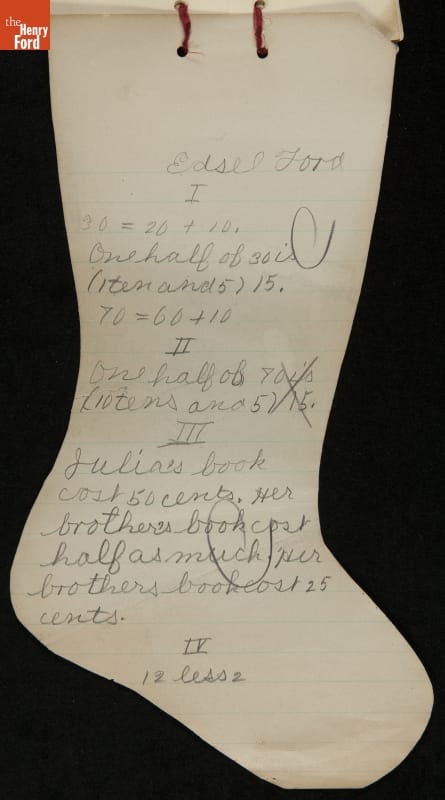 the
Henry
Ford
Edsel Ford
I
30 = 20 + 10.
One half of 30 is
(1 ten and 5) 15.
70 = 60 + 10
II
One half of 70 is
(10 tens and 5) 15.
III
Julia's book
cost 50 cents. Her
brother's book cost
half as much. Her
brothers book cost 25
cents.
IV
12 less 2